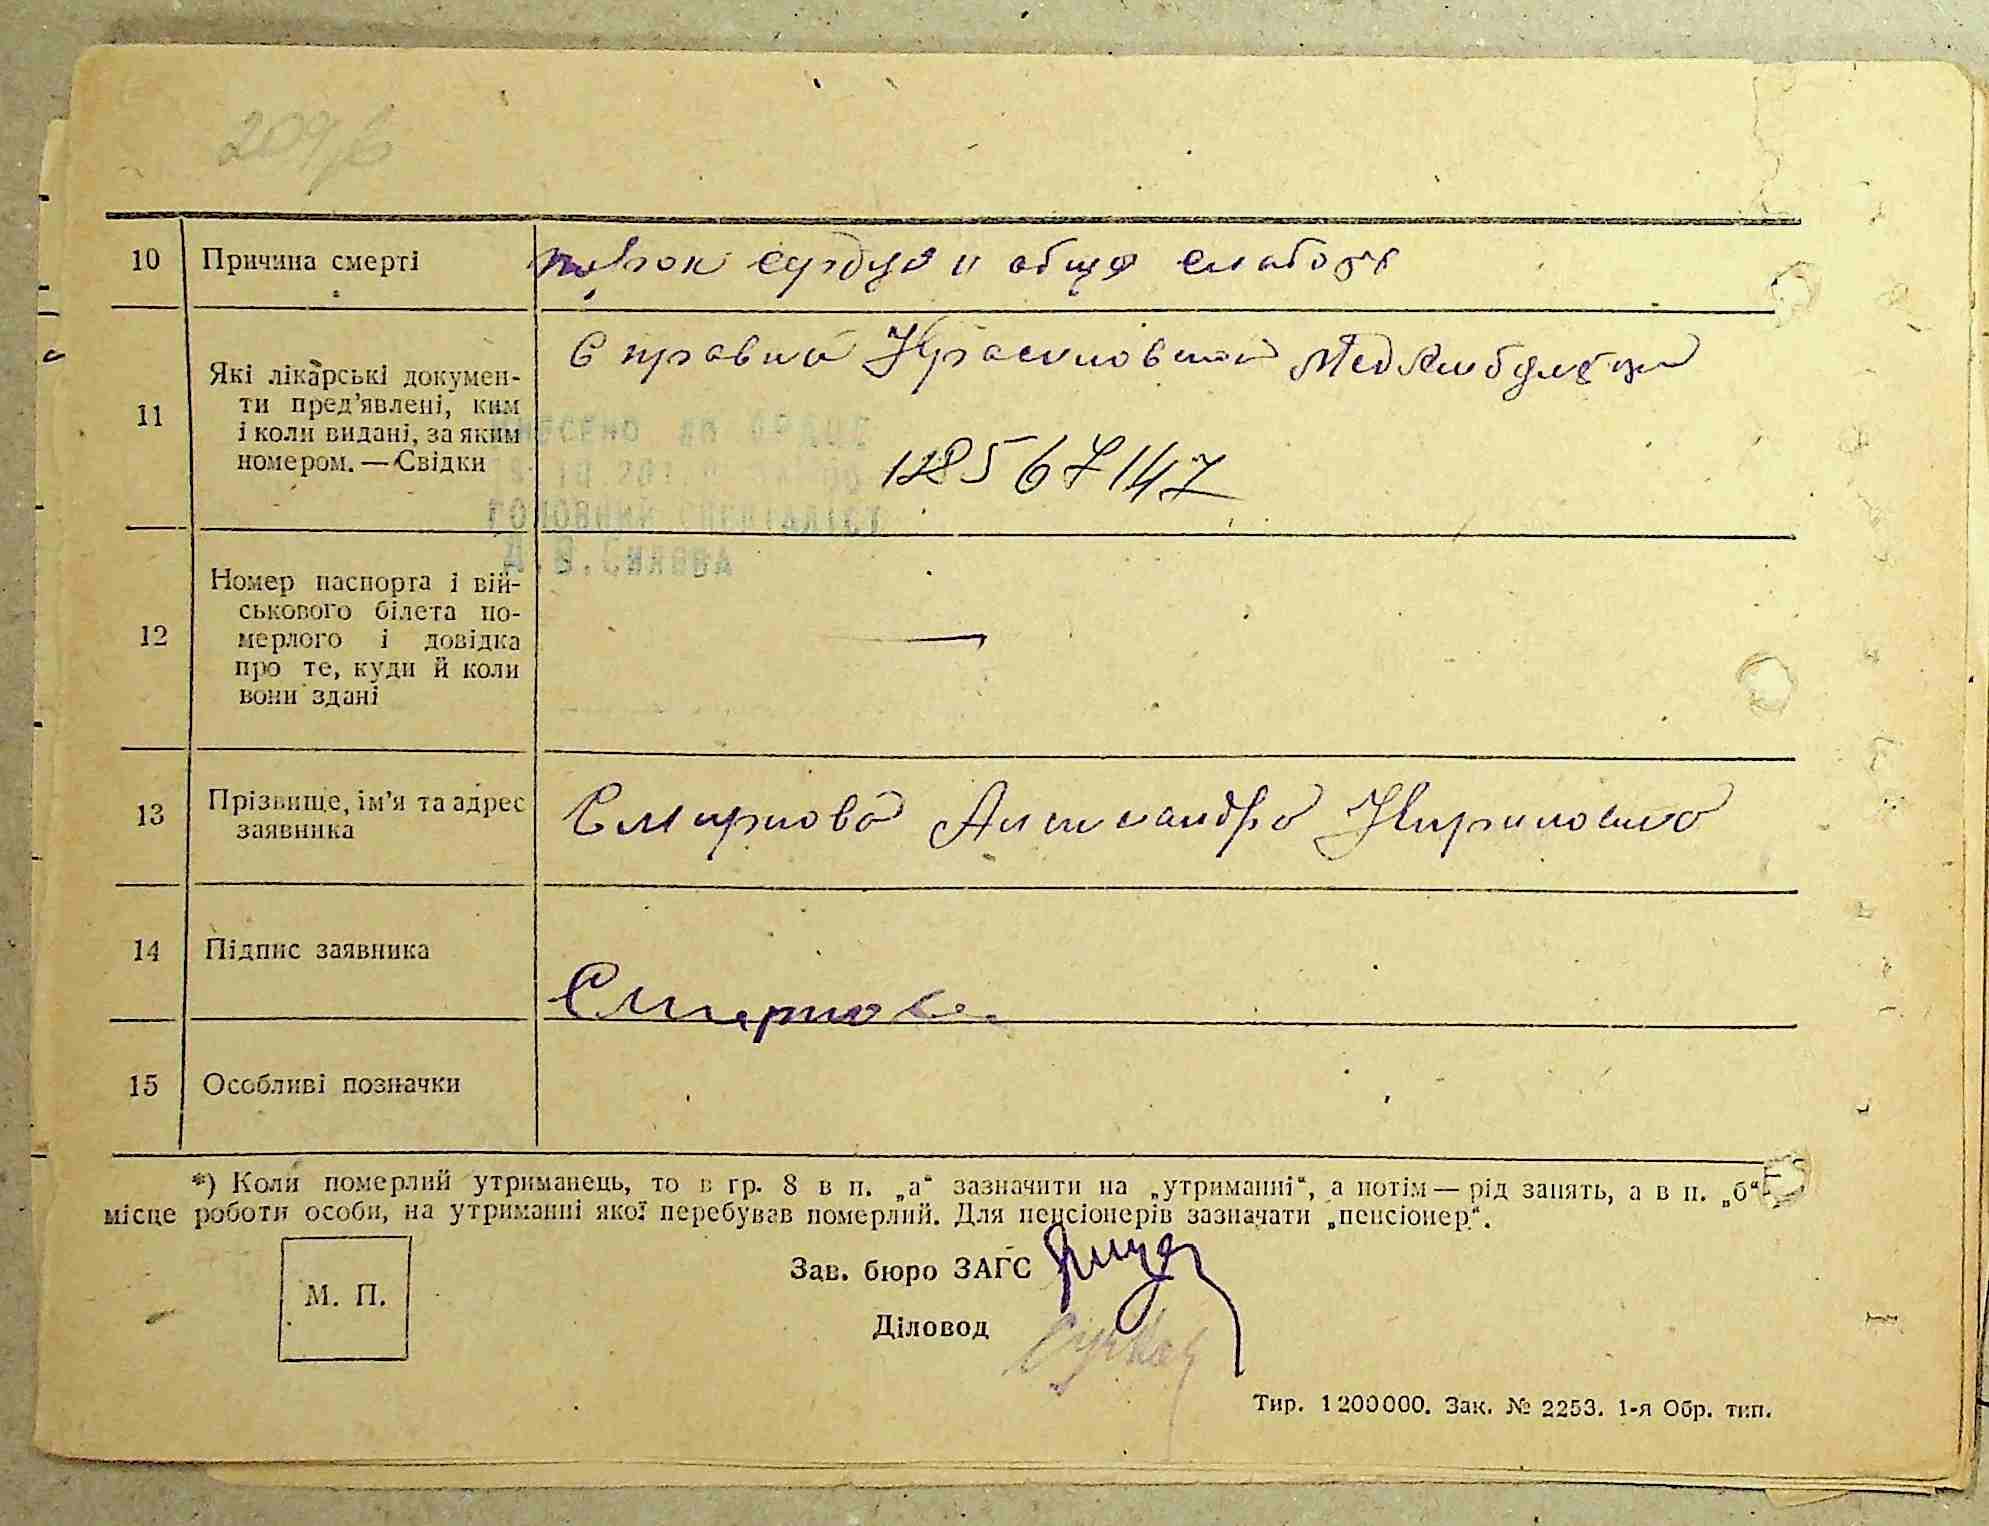 209/6
10 Причина смерті порок сердца и общая слабость
11 Які лікарські докумен-
ти пред'явлені, ким
і коли видані, за яким
номером. — Свідки
Справка Красиловской Медамбулатории
12 8567147
ВНЕСЕНО ДО ДРАЦС
ГОЛОВНИЙ СПЕЦІАЛІСТ
12 Номер паспорта і вій-
ськового білета по-
мерлого і довідка
про те, куди й коли
вони здані
—
13 Прізвище, ім'я та адрес
заявника
Смирнова Александра Кириловна
14 Підпис заявника
Смирнова
15 Особливі позначки
*) Коли померлий утриманець, то в гр. 8 в п. „а“ зазначити на „утриманні“, а потім — рід занять, а в п. „б“
місце роботи особи, на утриманні якої перебував померлий. Для пенсіонерів зазначати „пенсіонер“.
М. П.
Зав. бюро ЗАГС
Діловод
Тир. 1200000. Зак. № 2253. 1-я Обр. тип.